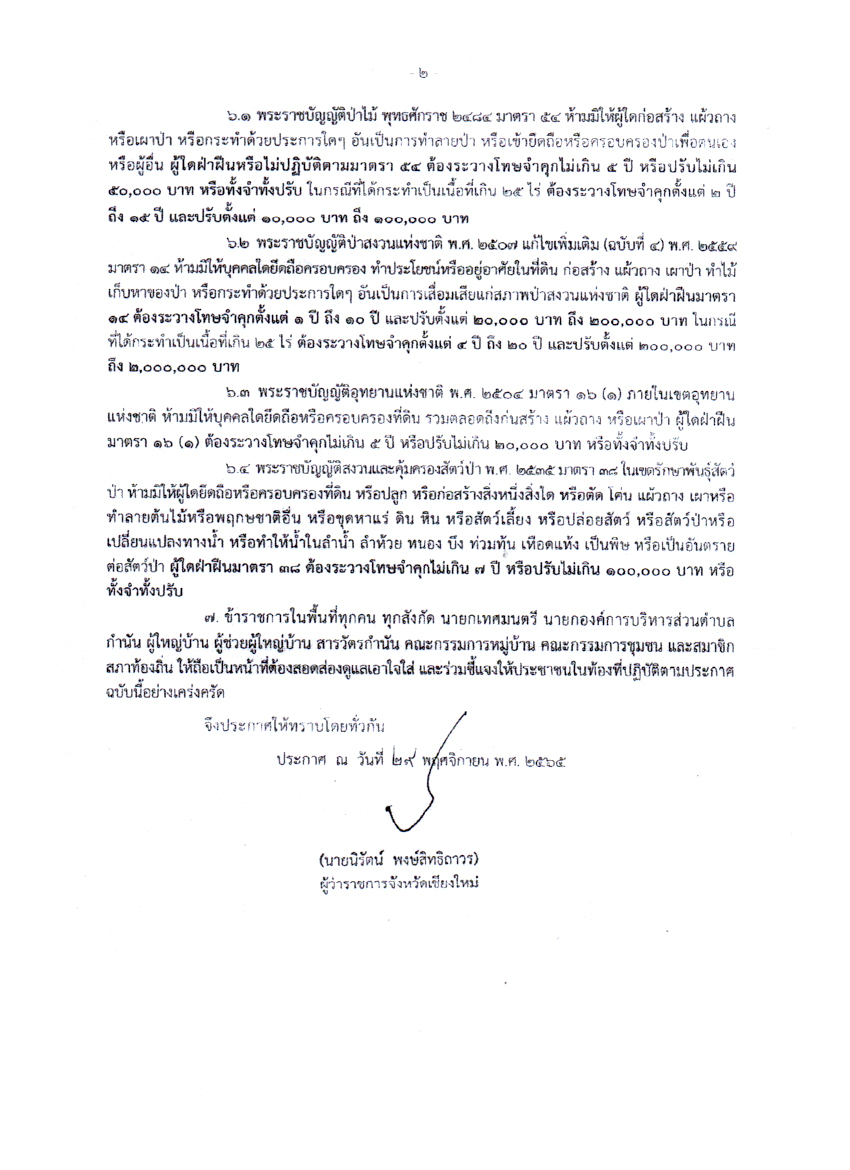 - ๒ -
๖.๑ พระราชบัญญัติป่าไม้ พุทธศักราช ๒๔๘๔ มาตรา ๕๔ ห้ามมิให้ผู้ใดก่อสร้าง แผ้วถาง
หรือเผาป่า หรือกระทำด้วยประการใดๆ อันเป็นการทำลายป่า หรือเข้ายึดถือหรือครอบครองป่าเพื่อตนเอง
หรือผู้อื่น ผู้ใดฝ่าฝืนหรือไม่ปฏิบัติตามมาตรา ๕๔ ต้องระวางโทษจำคุกไม่เกิน ๕ ปี หรือปรับไม่เกิน
๕๐,๐๐๐ บาท หรือทั้งจำทั้งปรับ ในกรณีที่ได้กระทำเป็นเนื้อที่เกิน ๒๕ ไร่ ต้องระวางโทษจำคุกตั้งแต่ ๒ ปี
ถึง ๑๕ ปี และปรับตั้งแต่ ๑๐,๐๐๐ บาท ถึง ๑๐๐,๐๐๐ บาท
๖.๒ พระราชบัญญัติป่าสงวนแห่งชาติ พ.ศ. ๒๕๐๗ แก้ไขเพิ่มเติม (ฉบับที่ ๔) พ.ศ. ๒๕๕๙
มาตรา ๑๔ ห้ามมิให้บุคคลใดยึดถือครอบครอง ทำประโยชน์หรืออยู่อาศัยในที่ดิน ก่อสร้าง แผ้วถาง เผาป่า ทำไม้
เก็บหาของป่า หรือกระทำด้วยประการใดๆ อันเป็นการเสื่อมเสียแก่สภาพป่าสงวนแห่งชาติ ผู้ใดฝ่าฝืนมาตรา
๑๔ ต้องระวางโทษจำคุกตั้งแต่ ๑ ปี ถึง ๑๐ ปี และปรับตั้งแต่ ๒๐,๐๐๐ บาท ถึง ๒๐๐,๐๐๐ บาท ในกรณี
ที่ได้กระทำเป็นเนื้อที่เกิน ๒๕ ไร่ ต้องระวางโทษจำคุกตั้งแต่ ๔ ปี ถึง ๒๐ ปี และปรับตั้งแต่ ๒๐๐,๐๐๐ บาท
ถึง ๒,๐๐๐,๐๐๐ บาท
๖.๓ พระราชบัญญัติอุทยานแห่งชาติ พ.ศ. ๒๕๐๔ มาตรา ๑๖ (๑) ภายในเขตอุทยาน
แห่งชาติ ห้ามมิให้บุคคลใดยึดถือหรือครอบครองที่ดิน รวมตลอดถึงก่นสร้าง แผ้วถาง หรือเผาป่า ผู้ใดฝ่าฝืน
มาตรา ๑๖ (๑) ต้องระวางโทษจำคุกไม่เกิน ๕ ปี หรือปรับไม่เกิน ๒๐,๐๐๐ บาท หรือทั้งจำทั้งปรับ
๖.๔ พระราชบัญญัติสงวนและคุ้มครองสัตว์ป่า พ.ศ. ๒๕๓๕ มาตรา ๓๘ ในเขตรักษาพันธุ์สัตว์
ป่า ห้ามมิให้ผู้ใดยึดถือหรือครอบครองที่ดิน หรือปลูก หรือก่อสร้างสิ่งหนึ่งสิ่งใด หรือตัด โค่น แผ้วถาง เผาหรือ
ทำลายต้นไม้หรือพฤกษชาติอื่น หรือขุดหาแร่ ดิน หิน หรือสัตว์เลี้ยง หรือปล่อยสัตว์ หรือสัตว์ป่าหรือ
เปลี่ยนแปลงทางน้ำ หรือทำให้น้ำในลำน้ำ ลำห้วย หนอง บึง ท่วมท้น เหือดแห้ง เป็นพิษ หรือเป็นอันตราย
ต่อสัตว์ป่า ผู้ใดฝ่าฝืนมาตรา ๓๘ ต้องระวางโทษจำคุกไม่เกิน ๗ ปี หรือปรับไม่เกิน ๑๐๐,๐๐๐ บาท หรือ
ทั้งจำทั้งปรับ
๗. ข้าราชการในพื้นที่ทุกคน ทุกสังกัด นายกเทศมนตรี นายกองค์การบริหารส่วนตำบล
กำนัน ผู้ใหญ่บ้าน ผู้ช่วยผู้ใหญ่บ้าน สารวัตรกำนัน คณะกรรมการหมู่บ้าน คณะกรรมการชุมชน และสมาชิก
สภาท้องถิ่น ให้ถือเป็นหน้าที่ต้องสอดส่องดูแลเอาใจใส่ และร่วมชี้แจงให้ประชาชนในท้องที่ปฏิบัติตามประกาศ
ฉบับนี้อย่างเคร่งครัด
จึงประกาศให้ทราบโดยทั่วกัน
ประกาศ ณ วันที่ ๒๙ พฤศจิกายน พ.ศ. ๒๕๖๕
(นายนิรัตน์ พงษ์สิทธิถาวร)
ผู้ว่าราชการจังหวัดเชียงใหม่